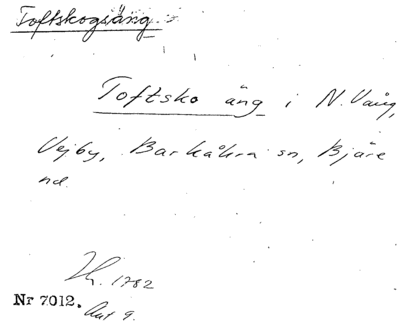 Toftskogsäng
Toftsko äng i N. Vång,
Vejby, Barkåkra sn, Bjäre
nd.
1782
Nr 7012. Akt 9.